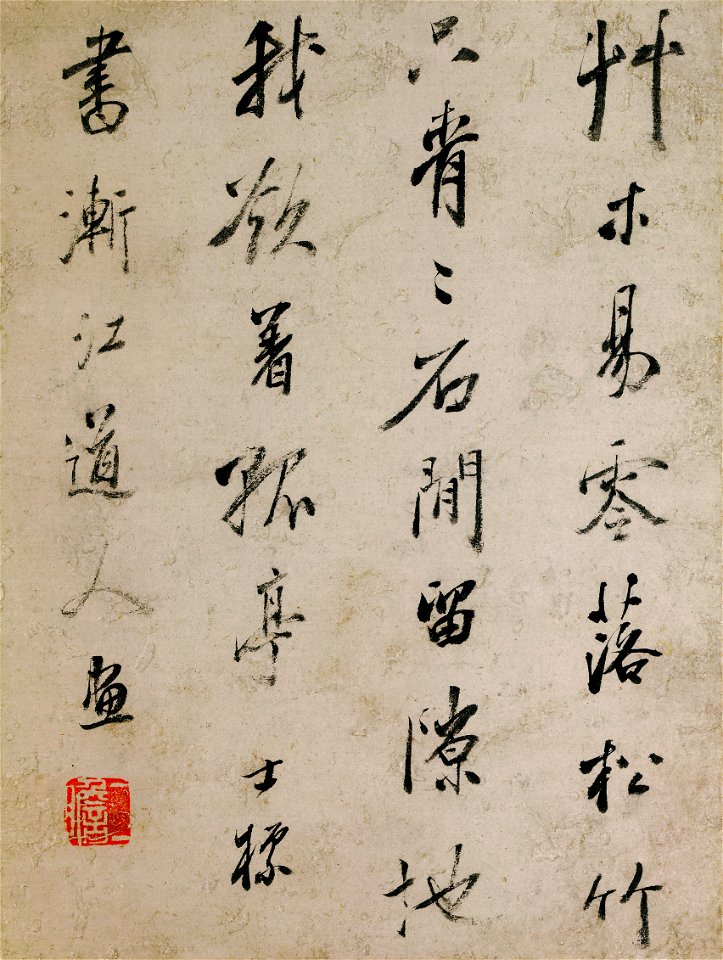 艸木易零落松竹
只青〻石間留隙地
我欲着孤亭士標
書漸江道人画